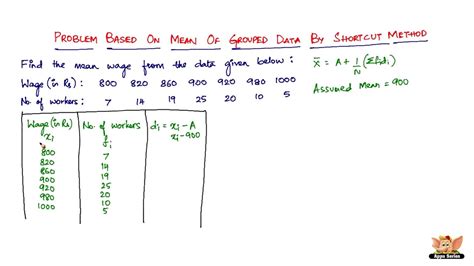 PROBLEM BASED ON MEAN OF GROUPED DATA BY SHORTCUT METHOD
Find the mean wage from the data given below :
Wage (in Rs) : 800 820 860 900 920 980 1000
No. of workers : 7 14 19 25 20 10 5
x̄ = A + 1/N (Σfidi)
Assumed Mean = 900
Wage (in Rs) No. of workers di = xi - A
xi fi xi - 900
800 7
820 14
860 19
900 25
920 20
980 10
1000 5
Apps Series